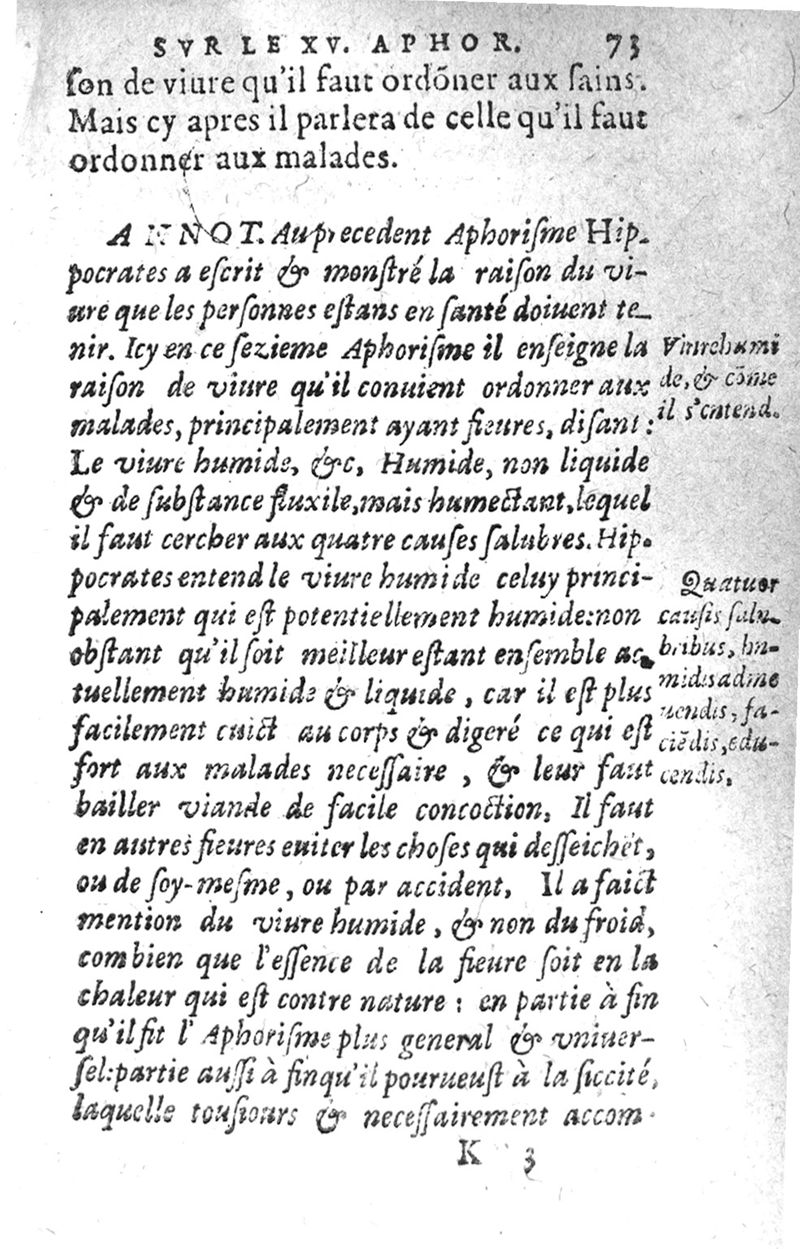 SVR LE XV. APHOR. 73
ſon de viure qu'il faut ordõner aux ſains.
Mais cy apres il parlera de celle qu'il faut
ordonner aux malades.
ANNOT. Au precedent Aphoriſme Hip-
pocrates a eſcrit & monſtré la raiſon du vi-
ure que les perſonnes eſtans en ſanté doiuent te-
nir. Icy en ce ſezieme Aphoriſme il enſeigne la
raiſon de viure qu'il conuient ordonner aux
malades, principalement ayant fieures, diſant:
Le viure humide, &c. Humide, non liquide
& de ſubſtance fluxile, mais humectant, lequel
il faut cercher aux quatre cauſes ſalubres. Hip-
pocrates entend le viure humide celuy princi-
palement qui eſt potentiellement humide: non
obſtant qu'il ſoit meilleur eſtant enſemble ac-
tuellement humide & liquide, car il eſt plus
facilement cuict au corps & digeré ce qui eſt
fort aux malades neceſſaire, & leur faut
bailler viande de facile concoction. Il faut
en autres fieures euiter les choſes qui deſſeichẽt,
ou de ſoy-meſme, ou par accident. Il a faict
mention du viure humide, & non du froid,
combien que l'eſſence de la fieure ſoit en la
chaleur qui eſt contre nature: en partie à fin
qu'il fit l'Aphoriſme plus general & vniuer-
ſel: partie auſſi à fin qu'il pourueuſt à la ſiccité,
laquelle touſiours & neceſſairement accom-
K 3
Viure humi
de, & cõme
il s'entend.
Quatuor
cauſis ſalu-
bribus, hu-
midis adme
uendis, fa-
ciẽdis, edu-
cendis.